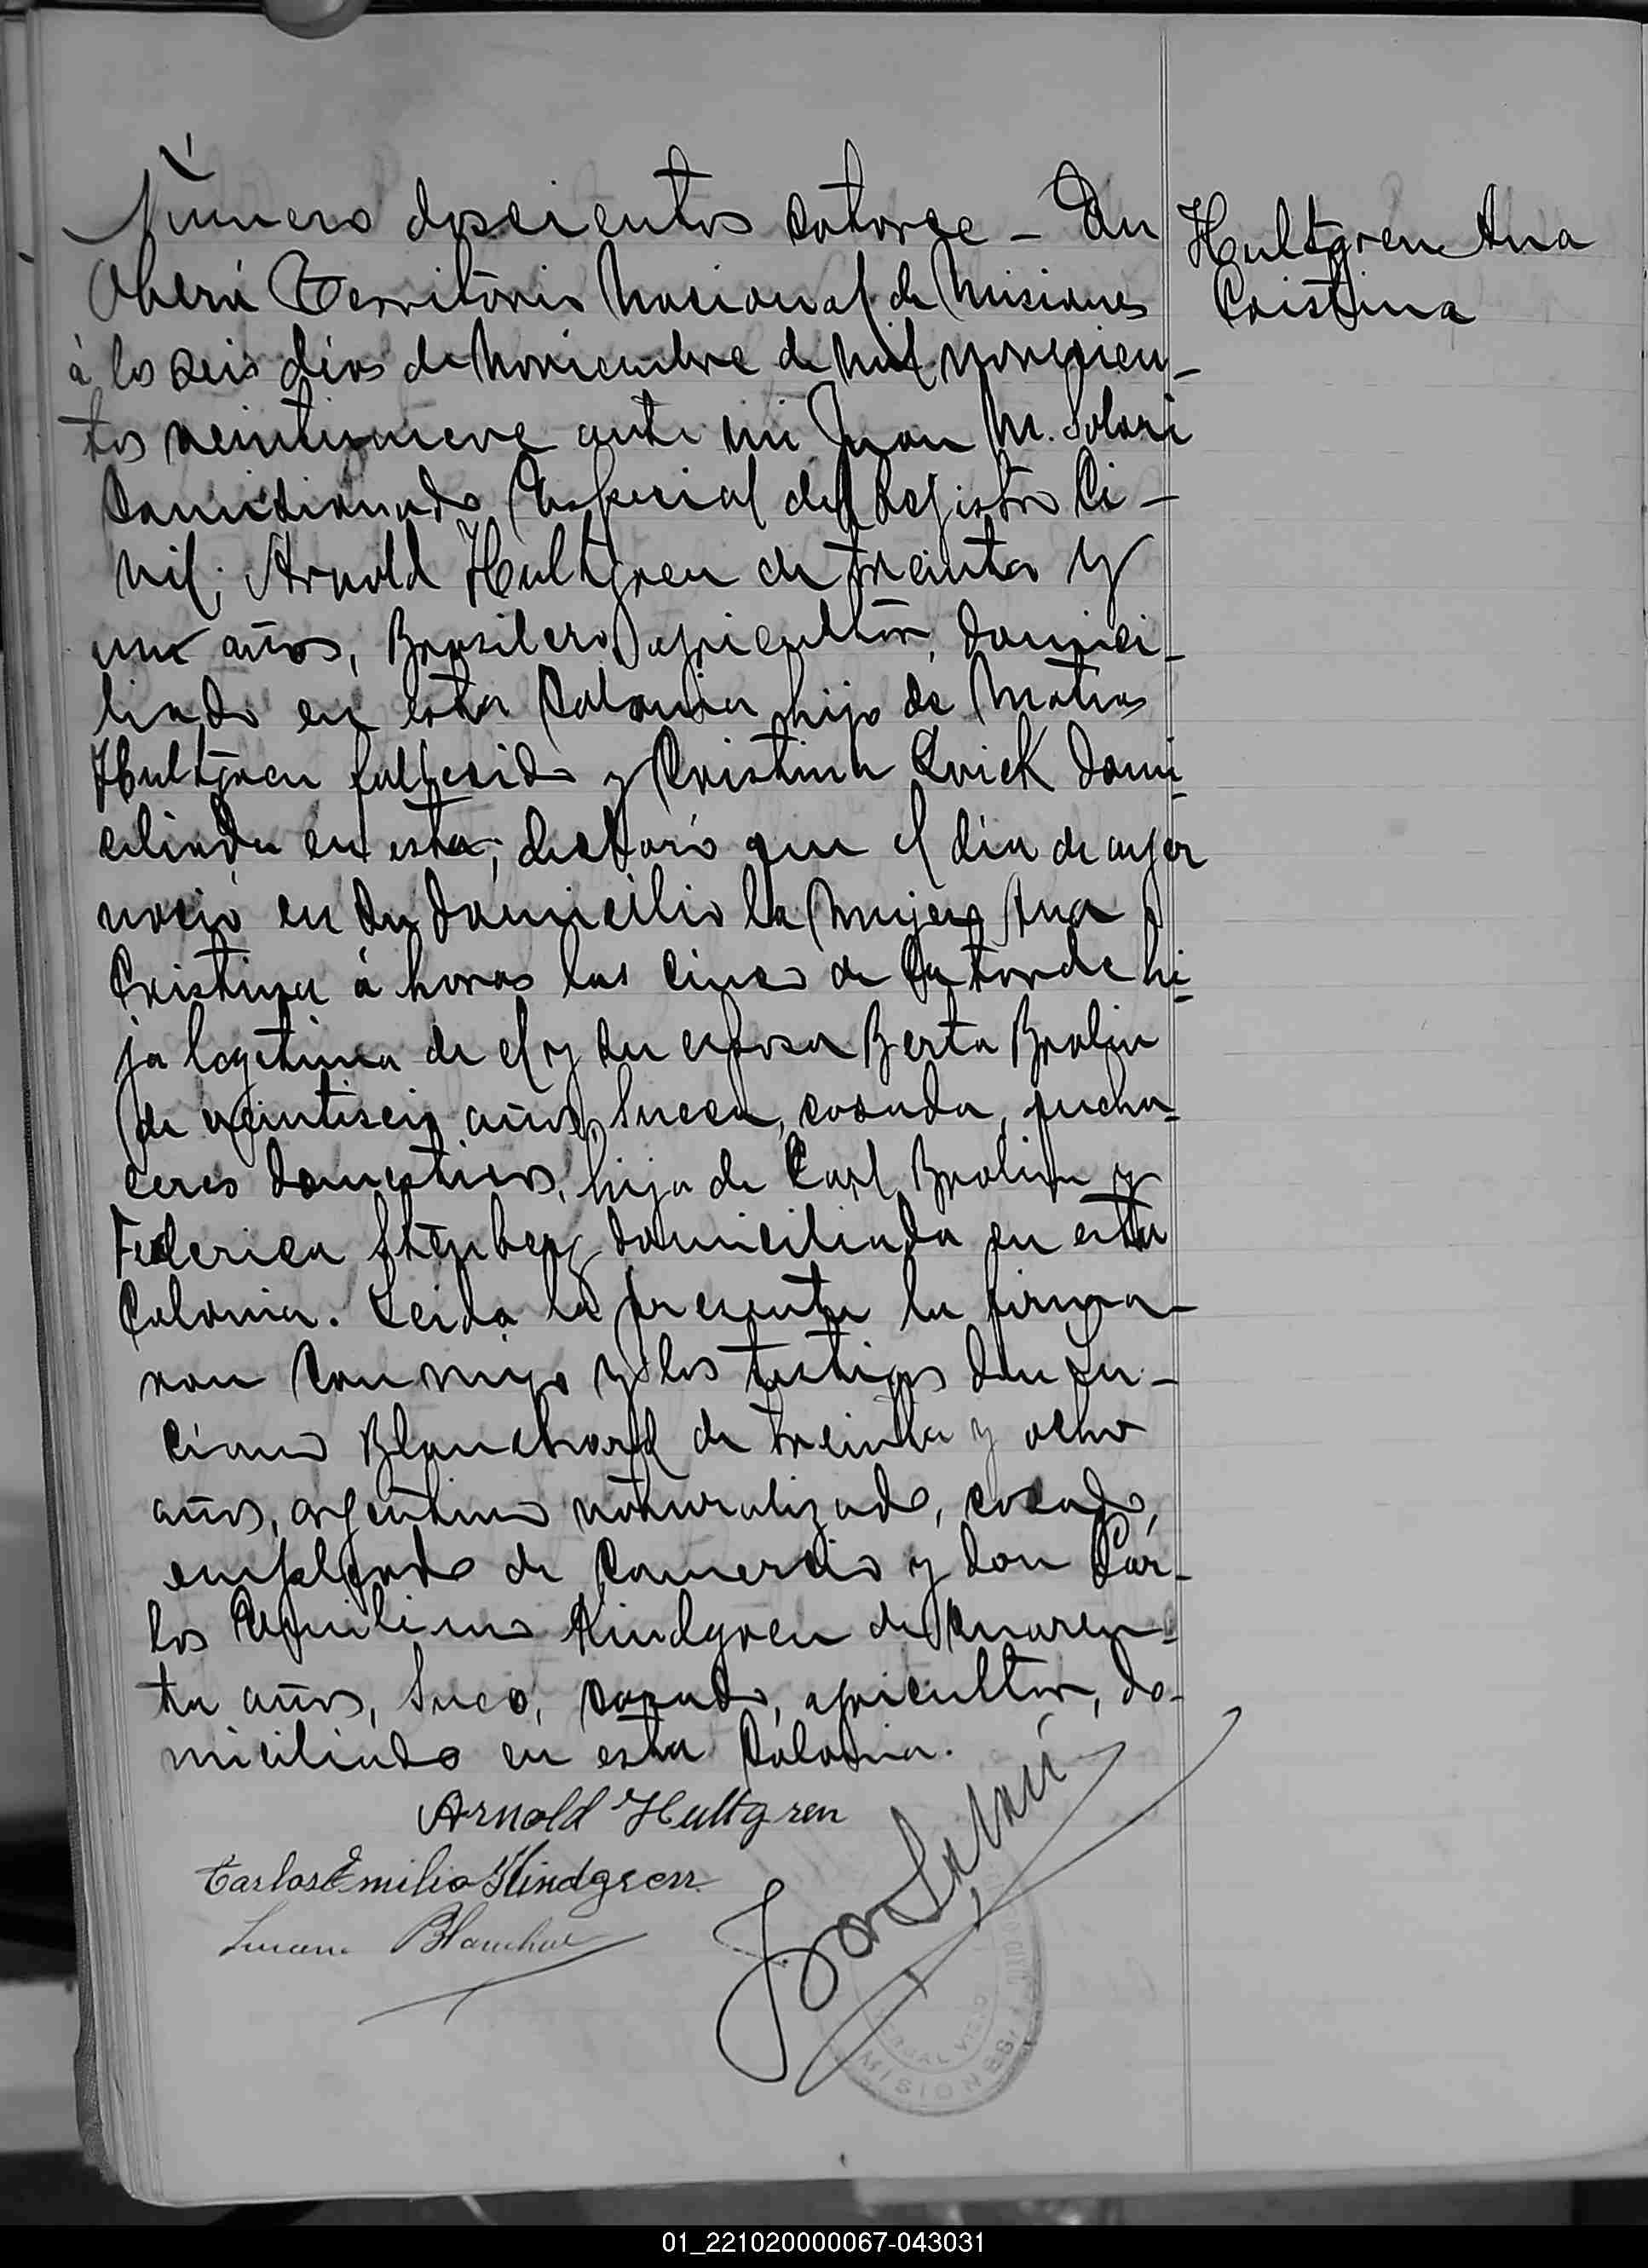 Número doscientos catorce – En
Oberá Territorio Nacional de Misiones
á los seis dias de Noviembre de mil novecien-
tos veintinueve ante mi Juan M. Solari
Comisionado Especial del Registro Ci-
vil; Arnold Hultgren de treinta y
un años, Brasilero, agricultor, domici-
liado en esta Colonia hijo de Matias
Hultgren fallecido y Cristina Kvick domi
ciliada en esta; declaró que el dia de ayer
nació en su domicilio la mujer Ana
Cristina á horas las cinco de la tarde hi-
ja legitima de el y su esposa Berta Brolin
de veintiseis años, Sueca, casada, queha-
ceres domesticos, hija de Carl Brolin y
Federica Stenberg domiciliada en esta
Colonia. Leida la presente la firma-
ron conmigo y los testigos don Lu-
ciano Blanchard de treinta y ocho
años, argentino naturalizado, casado,
empleado de Comercio y don Car-
los Kindgren de cuaren-
ta años, Sueco, casado, agricultor, do-
miciliado en esta Colonia.
Hultgren Ana
Cristina
Arnold Hultgren
Carlos Emilio Kindgren
Luciano Blanchar
Juan Solari
MISIONES
01_221020000067-043031